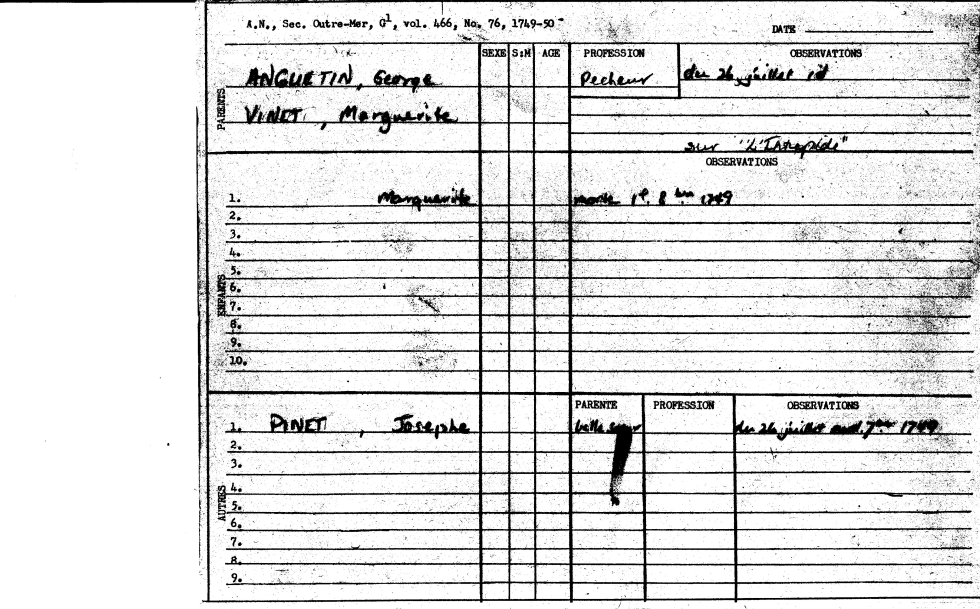 A.N., Sec. Outre-Mer, G1, vol. 466, No. 76, 1749-50
DATE
SEXE S:M AGE PROFESSION OBSERVATIONS
PARENTS
ANGUETIN, George Pecheur du 26 juillet
VINET, Marguerite
sur "L'Intrepide"
OBSERVATIONS
ENFANTS
1. Marguerite morte 1e. 8 bre 1749
2.
3.
4.
5.
6.
7.
8.
9.
10.
PARENTE PROFESSION OBSERVATIONS
AUTRES
1. PINET, Josephe belle soeur du 26 juillet 7bre 1749
2.
3.
4.
5.
6.
7.
8.
9.